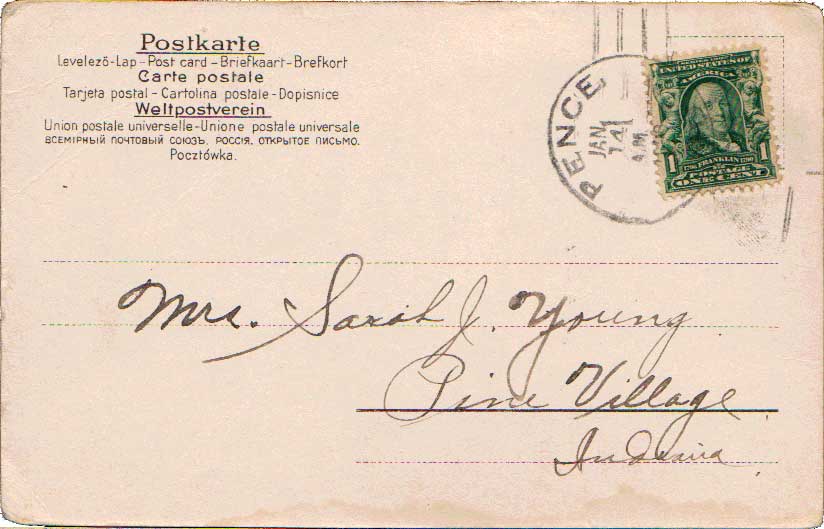 Postkarte
Levelező-Lap - Post card - Briefkaart - Brefkort
Carte postale
Tarjeta postal - Cartolina postale - Dopisnice
Weltpostverein
Union postale universelle - Unione postale universale
ВСЕМІРНЫЙ ПОЧТОВЫЙ СОЮЗЪ. РОССІЯ. ОТКРЫТОЕ ПИСЬМО.
Pocztówka.
PENCE
JAN
14
A.M.
UNITED STATES OF
AMERICA
1 1706 FRANKLIN 1790 1
POSTAGE
ONE CENT
Mrs. Sarah J. Young
Pine Village
Indiana